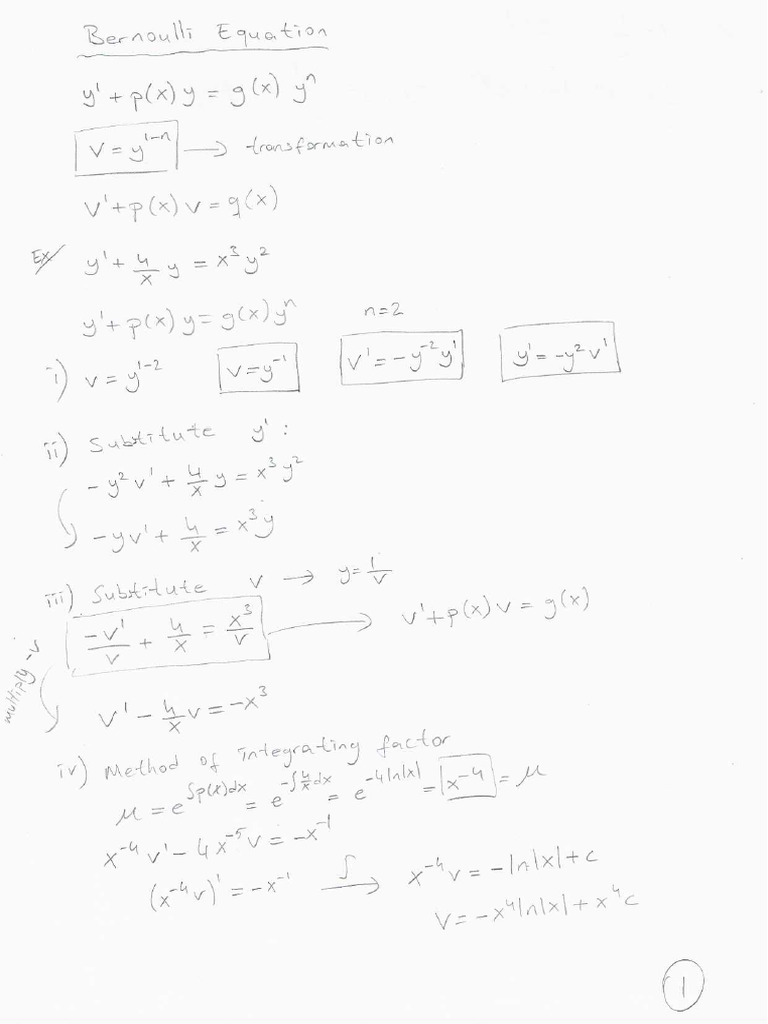 Bernoulli Equation
y' + p(x) y = g(x) yⁿ
v = y¹⁻ⁿ → transformation
v' + p(x) v = g(x)
Ex/ y' + 4/x y = x³ y²
y' + p(x) y = g(x) yⁿ n=2
i) v = y¹⁻² v = y⁻¹ v' = -y⁻² y' y' = -y² v'
ii) Substitute y' :
-y² v' + 4/x y = x³ y²
-y v' + 4/x = x³ y
iii) Substitute v → y = 1/v
-v'/v + 4/x = x³/v → v' + p(x) v = g(x)
multiply -v
v' - 4/x v = -x³
iv) Method of integrating factor
μ = e^∫p(x)dx = e^-∫4/x dx = e^-4ln|x| = x⁻⁴ = μ
x⁻⁴ v' - 4x⁻⁵ v = -x⁻¹
(x⁻⁴ v)' = -x⁻¹ ∫→ x⁻⁴ v = -ln|x| + c
v = -x⁴ ln|x| + x⁴ c
1